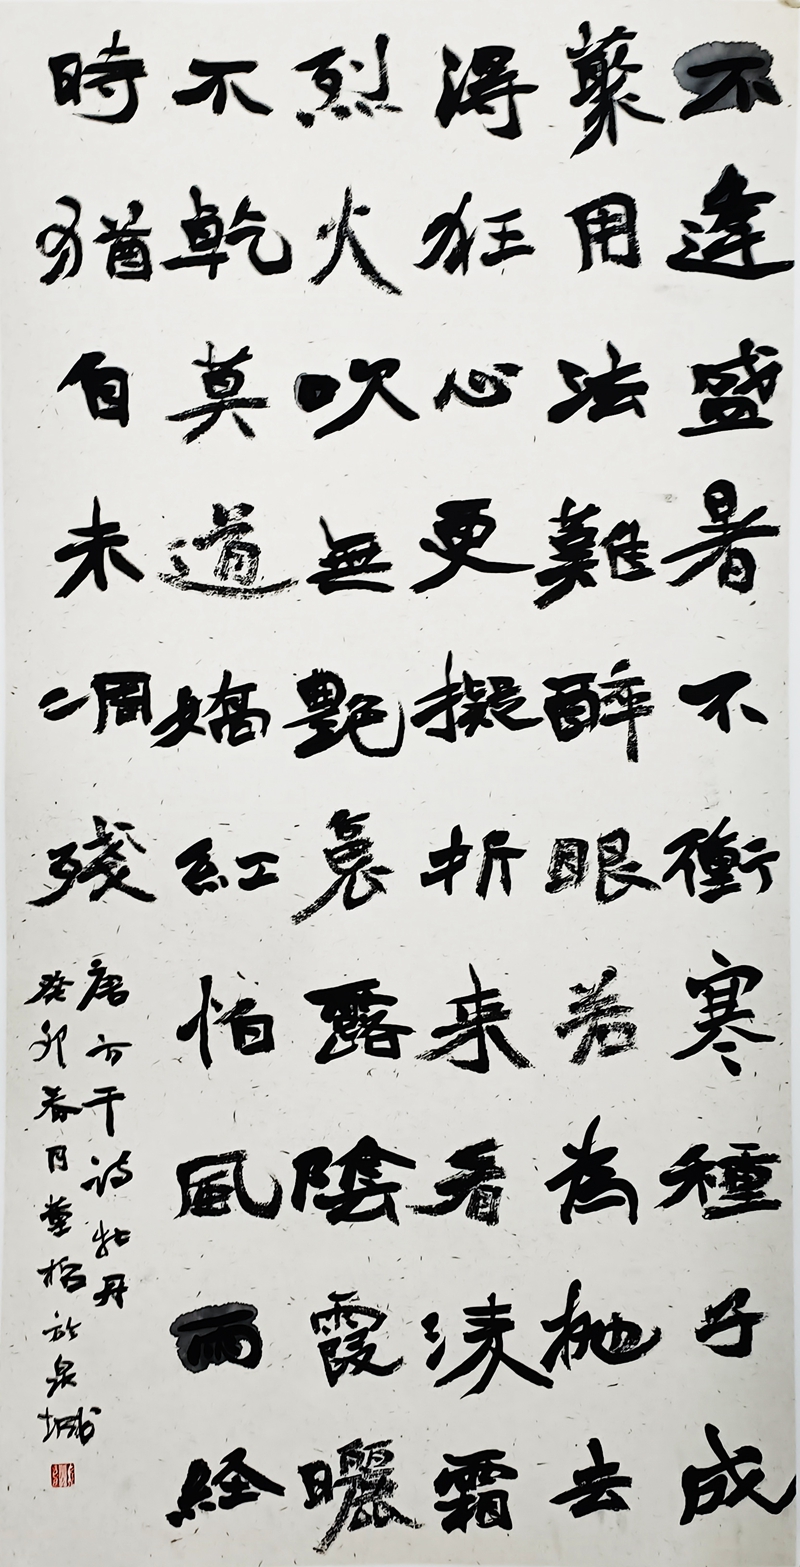 不逢盛暑不衝寒種子成
藂用法難醉眼若為抛去
得狂心更擬折来看凌霜
烈火吹無豔裛露陰霞曬
不乾莫道嬌紅怕風雨経
時猶自未凋殘
唐方干詩牡丹
癸卯春月董於泉城